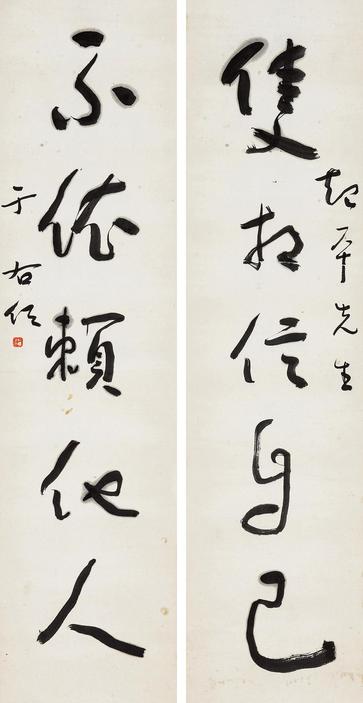 隻相信自己
起平先生
不依賴他人
于右任